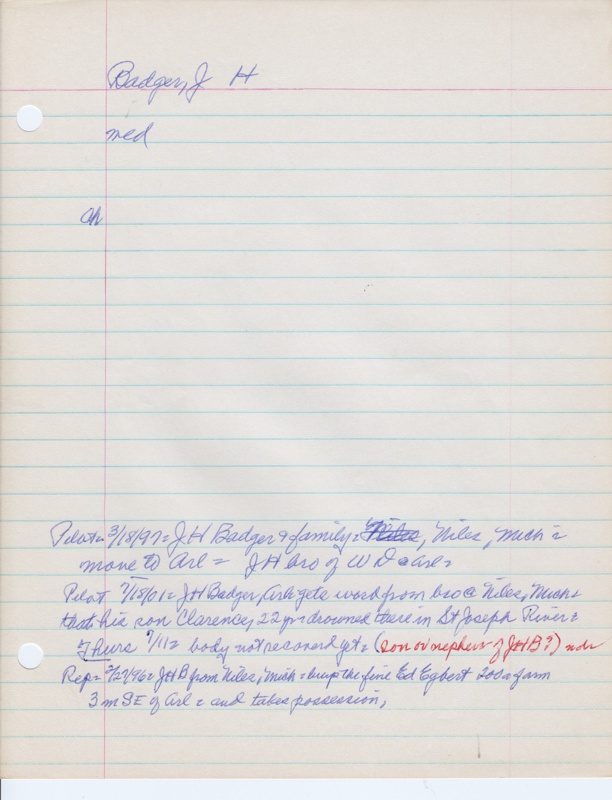 Badger, J H
med
ch
Pilot = 3/18/97 = J H Badger & family = Niles, Niles, Mich =
move to Arl = J H bro of W D @ Arl =
Pilot 7/18/01 = J H Badger, Arl gets word from bro @ Niles, Mich =
that his son Clarence, 22 yr = drowned there in St Joseph River =
Thurs 7/11 = body not recovered yet = (son or nephew of J H B?) ndr
Rep = 2/27/96 = J H B from Niles, Mich = buys the fine Ed Egbert 200 a farm
3 m SE of Arl = and takes possession,